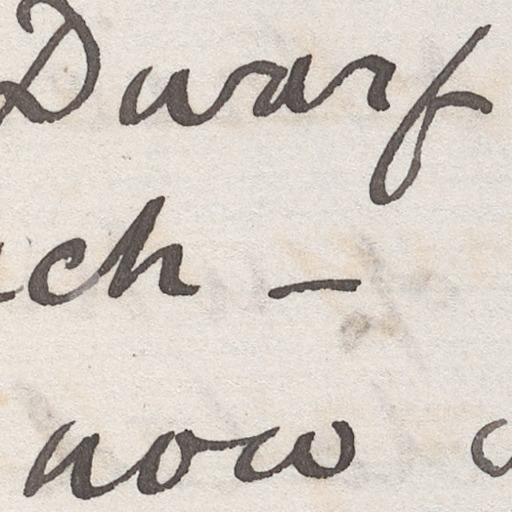 Dwarf
ch –
now